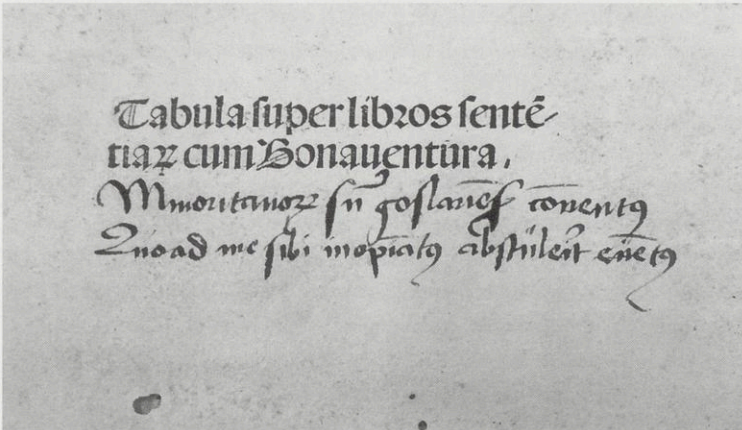 Tabula ſuper libꝛos ſentē-
tiaꝝ cum Bonauentura.
Minoritanoꝝ ſū goſlariēſ cōuentꝰ
Quoad me ſibi inopīatꝰ abſtuleīt euētꝰ